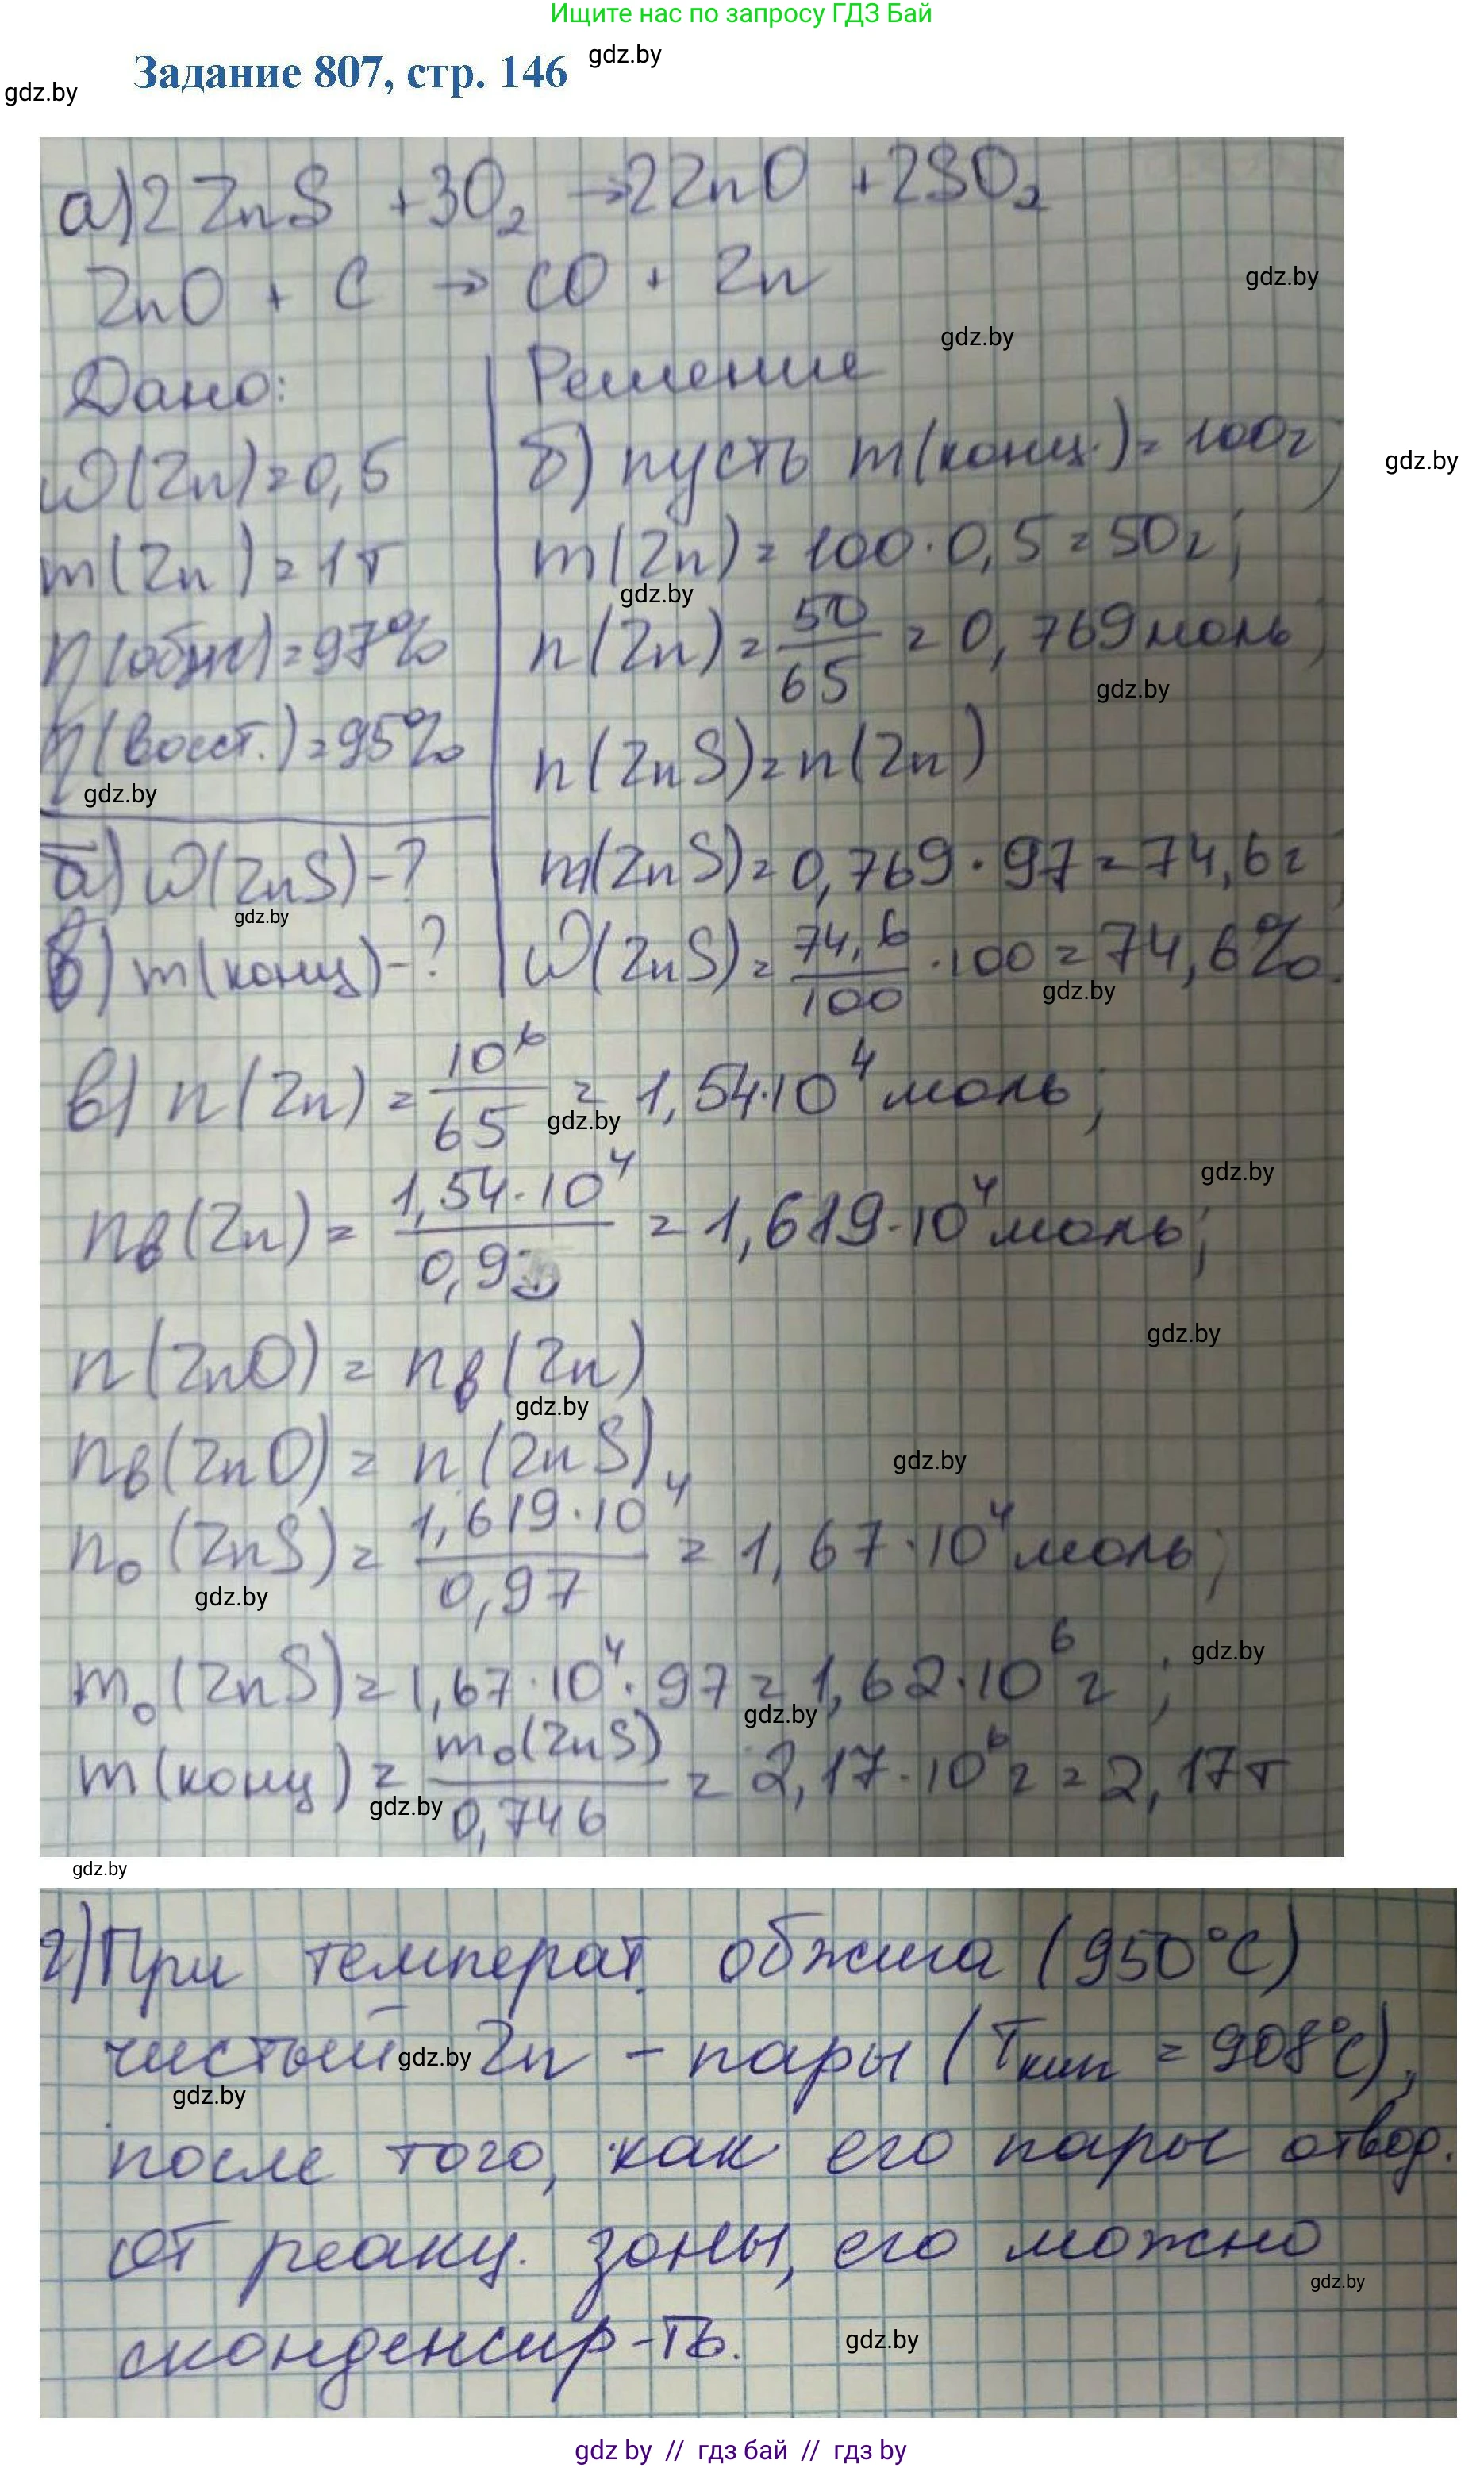 Ищите нас по запросу ГДЗ Бай
Задание 807, стр. 146
gdz.by
gdz.by
а) 2 ZnS + 3O₂ → 2ZnO + 2SO₂
ZnO + C → CO + Zn
gdz.by
gdz.by
Дано:
W(Zn)=0,5
m(Zn)=1т
η(обж)=97%
η(восст.)=95%
gdz.by
б) W(ZnS)-?
gdz.by
в) m(конц)-?
Решение
б) пусть m(конц.)=100г;
gdz.by
m(Zn)=100·0,5=50г;
gdz.by
n(Zn)=50/65=0,769моль;
gdz.by
n(ZnS)=n(Zn)
m(ZnS)=0,769·97=74,6г;
W(ZnS)=74,6/100·100=74,6%.
gdz.by
в) n(Zn)=10⁶/65=1,54·10⁴моль;
gdz.by
gdz.by
nв(Zn)=1,54·10⁴/0,9=1,619·10⁴моль;
gdz.by
n(ZnO)=nв(Zn)
gdz.by
nв(ZnO)=n(ZnS)
gdz.by
n₀(ZnS)=1,619·10⁴/0,97=1,67·10⁴моль;
gdz.by
gdz.by
m₀(ZnS)=1,67·10⁴·97=1,62·10⁶г;
gdz.by
m(конц)=m₀(ZnS)/0,746=2,17·10⁶г=2,17т
gdz.by
gdz.by
г) При температ. обжига (950°C)
чистый Zn – пары (Tкип = 908°C),
gdz.by
gdz.by
после того, как его пары отвод.
от реакц. зоны, его можно
gdz.by
сконденсир-ть.
gdz.by
gdz by // гдз бай // гдз by